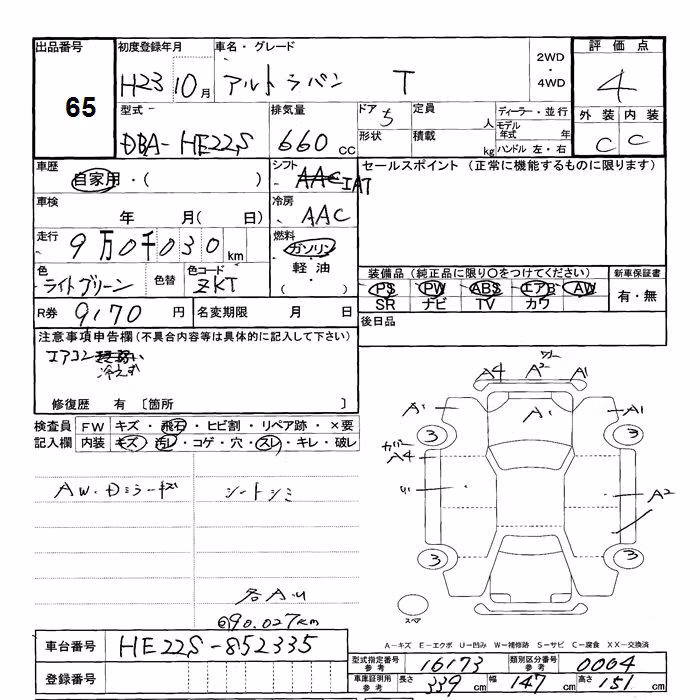 出品番号 初度登録年月 車名・グレード 2WD・4WD 評価点
65 H23 10月 アルトラパン T 4
型式 排気量 ドア 定員 ディーラー・並行 外装 内装
DBA-HE22S 660cc 5 人 モデル年式 年 C C
形状 積載 kg ハンドル 左・右
車歴 シフト セールスポイント (正常に機能するものに限ります)
自家用・( ) AAC IAT
車検 冷房
年 月( 日) AAC
走行 燃料
9万0千030km ガソリン・軽油・( )
色 色替 色コード 装備品 (純正品に限り○をつけてください) 新車保証書
ライトグリーン ZKT PS PW ABS エアB AW 有・無
SR ナビ TV カワ
R券 9170円 名変期限 月 日 後日品
注意事項申告欄 (不具合内容等は具体的に記入して下さい)
エアコン
冷えず
修復歴 有 〔箇所 〕
検査員記入欄 FW キズ・飛石・ヒビ割・リペア跡・×要
内装 キズ・汚レ・コゲ・穴・スレ・キレ・破レ
AW・Dミラーキズ シートシミ
各AU
@90.027km
A4 A2 A1
A1 A1 A1
3 3
カバー
A4
U A2
3 3
スペア
A-キズ E-エクボ U-凹み W-補修跡 S-サビ C-腐食 XX-交換済
車台番号 HE22S-852335
登録番号
型式指定番号参考 16173 類別区分番号参考 0004
車庫証明用参考 長さ 339cm 幅 147cm 高さ 151cm